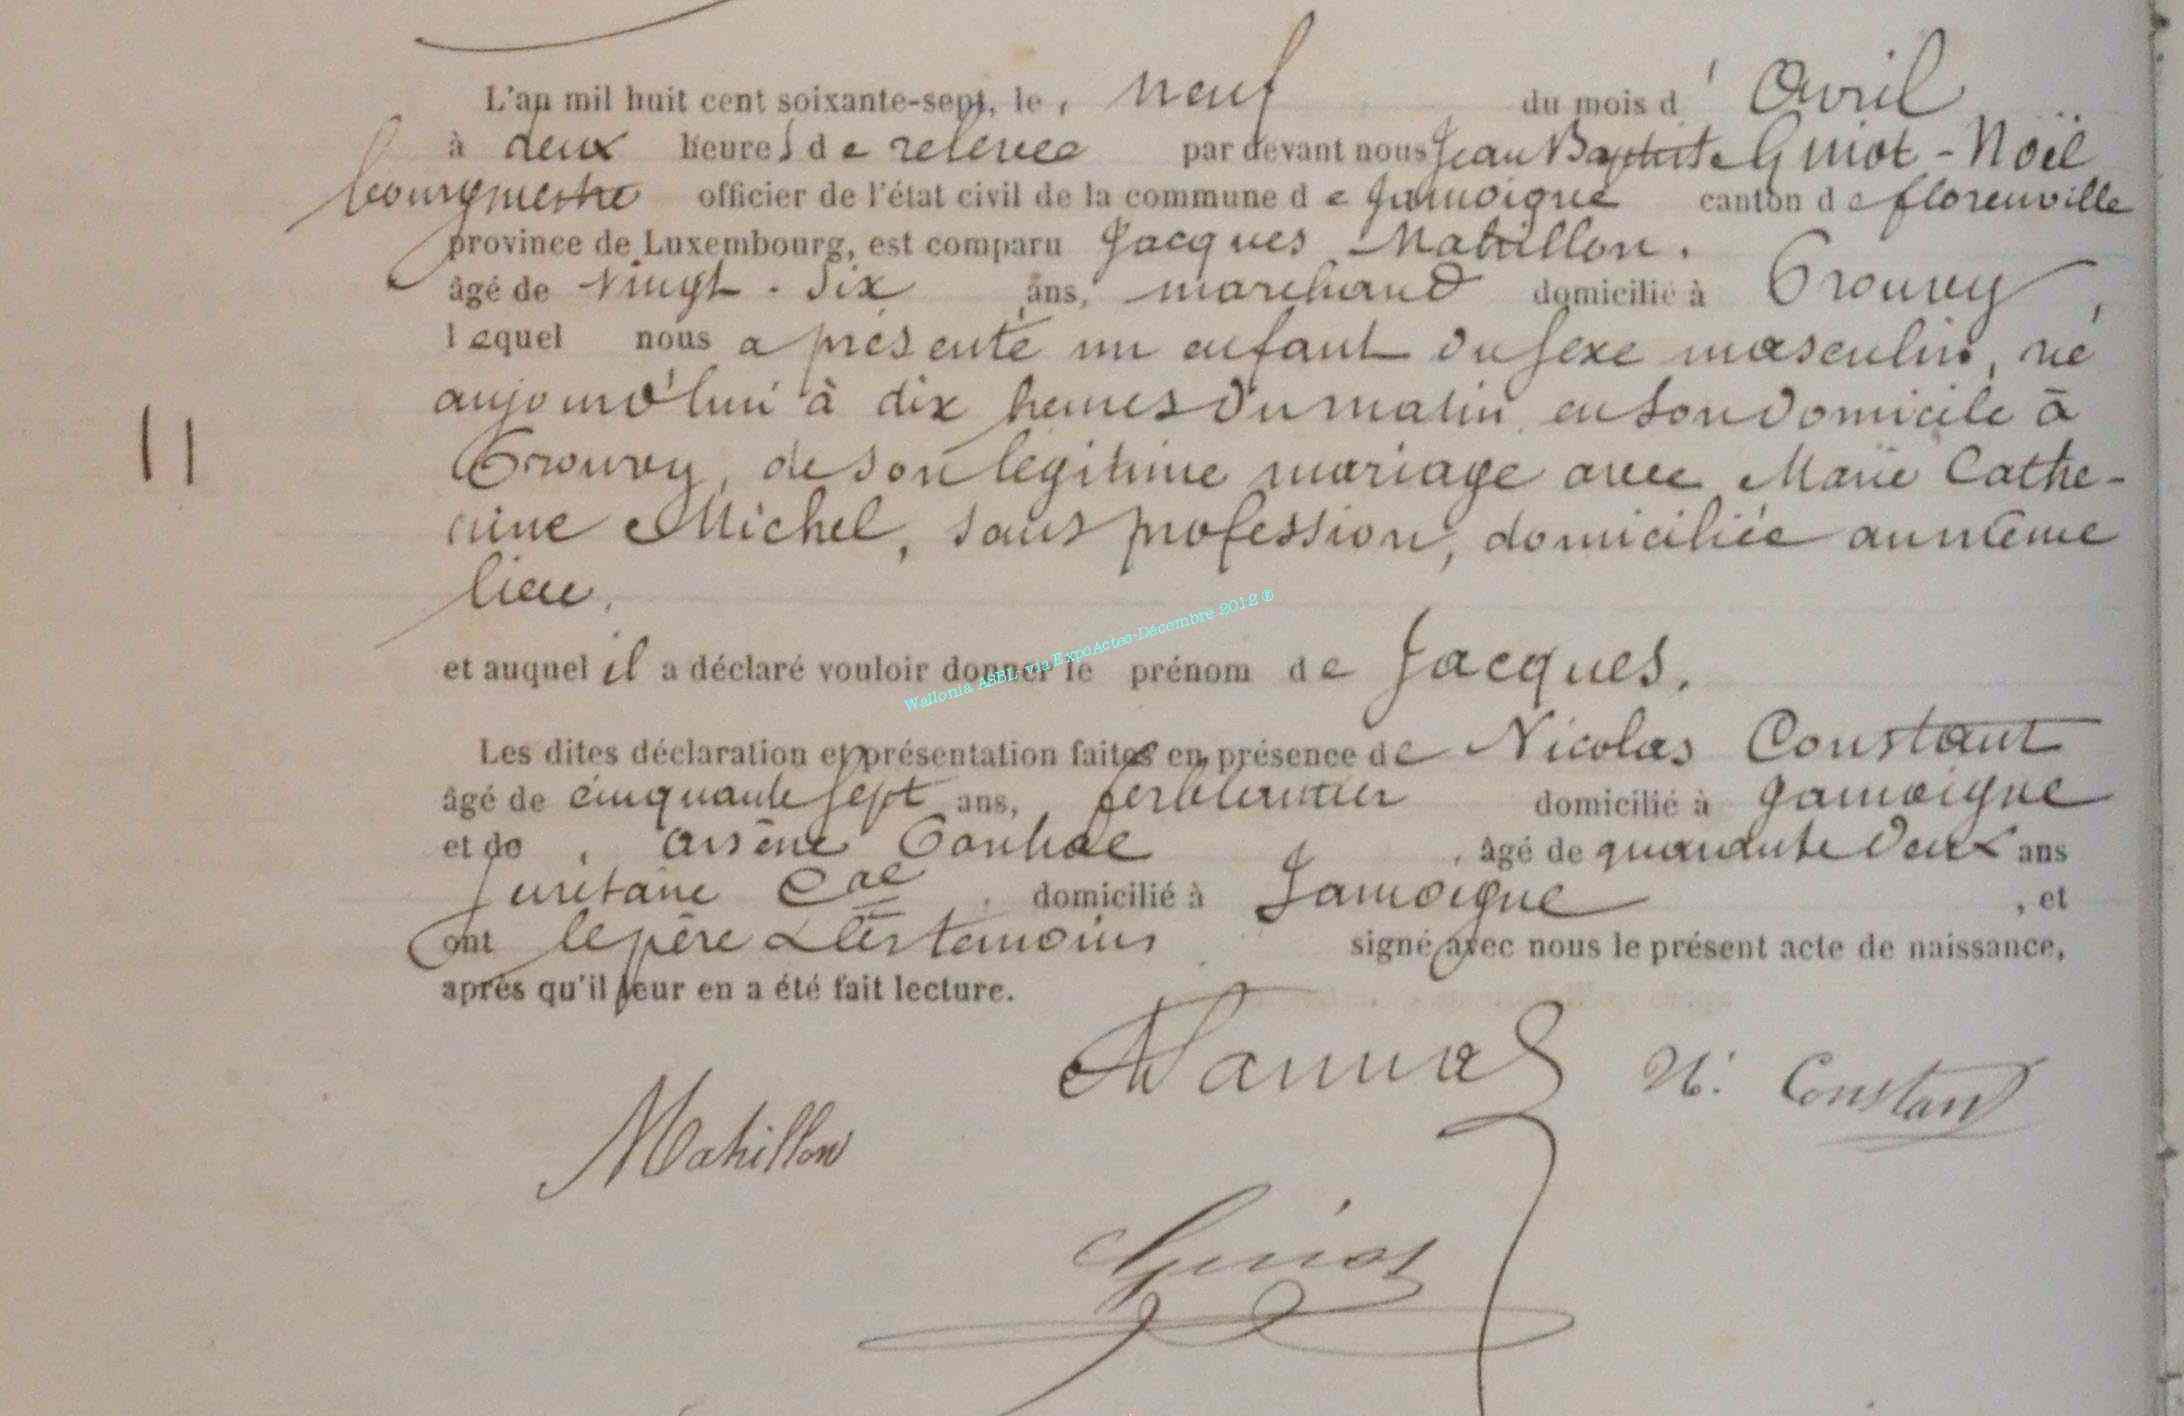 L'an mil huit cent soixante-sept, le neuf du mois d' Avril
à deux heures de relevée par devant nous Jean Baptiste Guiot - Noël
bourgmestre officier de l'état civil de la commune de Jamoigne canton de florenville
province de Luxembourg, est comparu Jacques Mahillon.
âgé de vingt-six ans, marchand domicilié à Prouvy,
lequel nous a présenté un enfant du sexe masculin, né
aujourd'hui à dix heures du matin en son domicile à
Prouvy, de son légitime mariage avec Marie Cathe-
rine Michel, sans profession, domiciliée au même
lieu,
Wallonia ASBL via ExpoActes-Décembre 2012 ®
et auquel il a déclaré vouloir donner le prénom de Jacques.
Les dites déclaration et présentation faites en présence de Nicolas Constant
âgé de cinquante sept ans, ferblantier domicilié à Jamoigne
et de Arsène , âgé de quarante deux ans
Secrétaire Cal , domicilié à Jamoigne , et
ont le père & les temoins signé avec nous le présent acte de naissance,
après qu'il leur en a été fait lecture.
N. Constant
Mahillon
Guiot
11